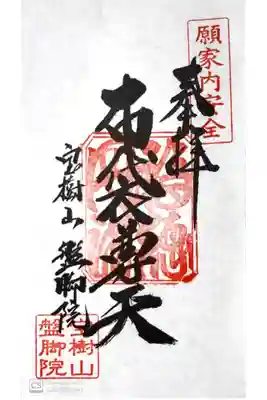 願家内安全
奉拝
布袋尊天
宝樹山 盤脚院
宝樹山
盤脚院
CS